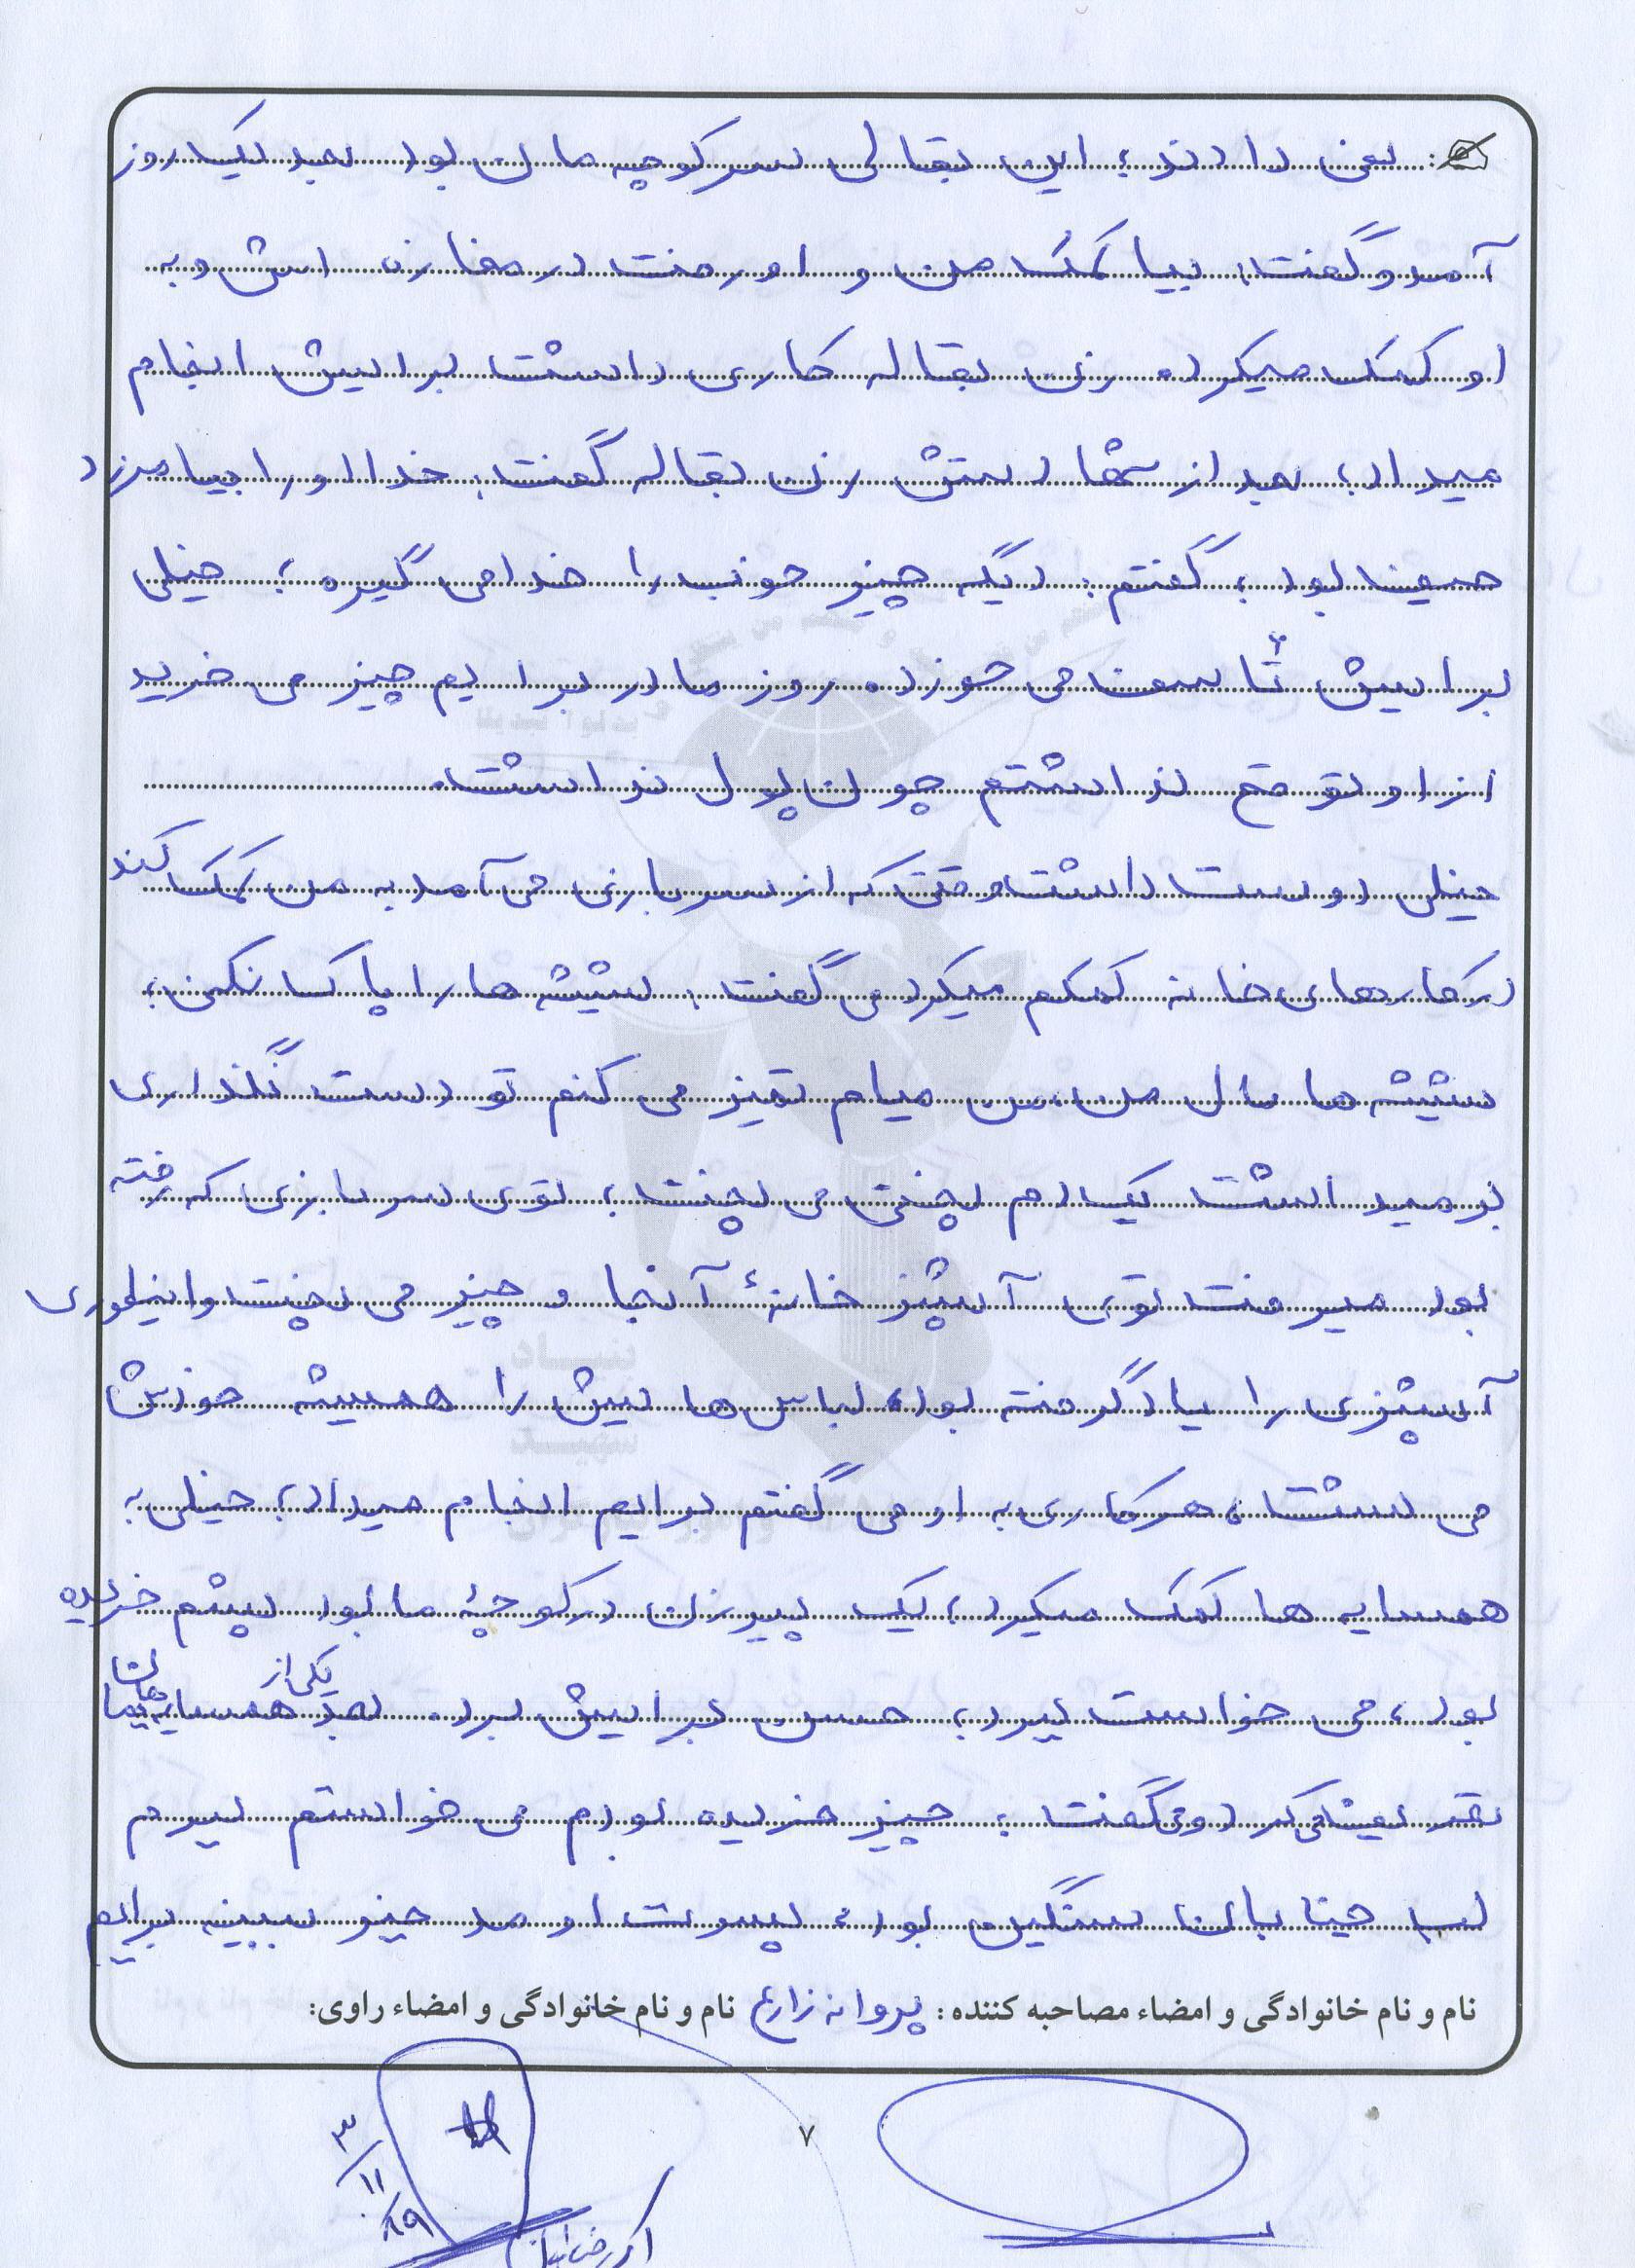 یعنی دادند؛ این بقالی سرکوچه مان بود بعد یک روز
آمد و گفت: بیا کمک من و او رفت در مغازه اش و به
او کمک میکرد. زن بقاله کاری داشت برایش انجام
میداد؛ بعد از شهادتش زن بقاله گفت: خدا او را بیامرزد
حیف بود؛ گفتم: دیگه چیز خوب را خدا می گیره؛ خیلی
برایش تأسف می خورد. روز مادر برایم چیز می خرید
از او توقع نداشتم چون پول نداشت.
خیلی دوست داشت وقتی که از سربازی می آمد به من کمک کند
در کارهای خانه کمکم میکرد می گفت: شیشه ها را پاک نکن؛
شیشه ها مال من، من میام تمیز می کنم تو دست نگذاری
برمیداشت یکدم پختی می پخت؛ توی سربازی که رفته
بود میرفت توی آشپزخانهٔ آنجا و چیز می پخت و اینطوری
آشپزی را یاد گرفته بود، لباس هایش را همیشه خودش
می شست، هر کاری به او می گفتم برایم انجام میداد؛ خیلی به
همسایه ها کمک میکرد؛ یک پیرزن در کوچهٔ ما بود پشم خریده
بود، می خواست ببرد؛ حسن برایش برد. بعد یکی از همسایه هامان
تعریف می کرد و می گفت: چیز خریده بودم می خواستم ببرم
لب خیابان سنگین بود، پسرت اومد چیزو ببینه برایم
نام و نام خانوادگی و امضاء مصاحبه کننده: پروانه زارع نام و نام خانوادگی و امضاء راوی:
۷
۳/۱۱/۸۹